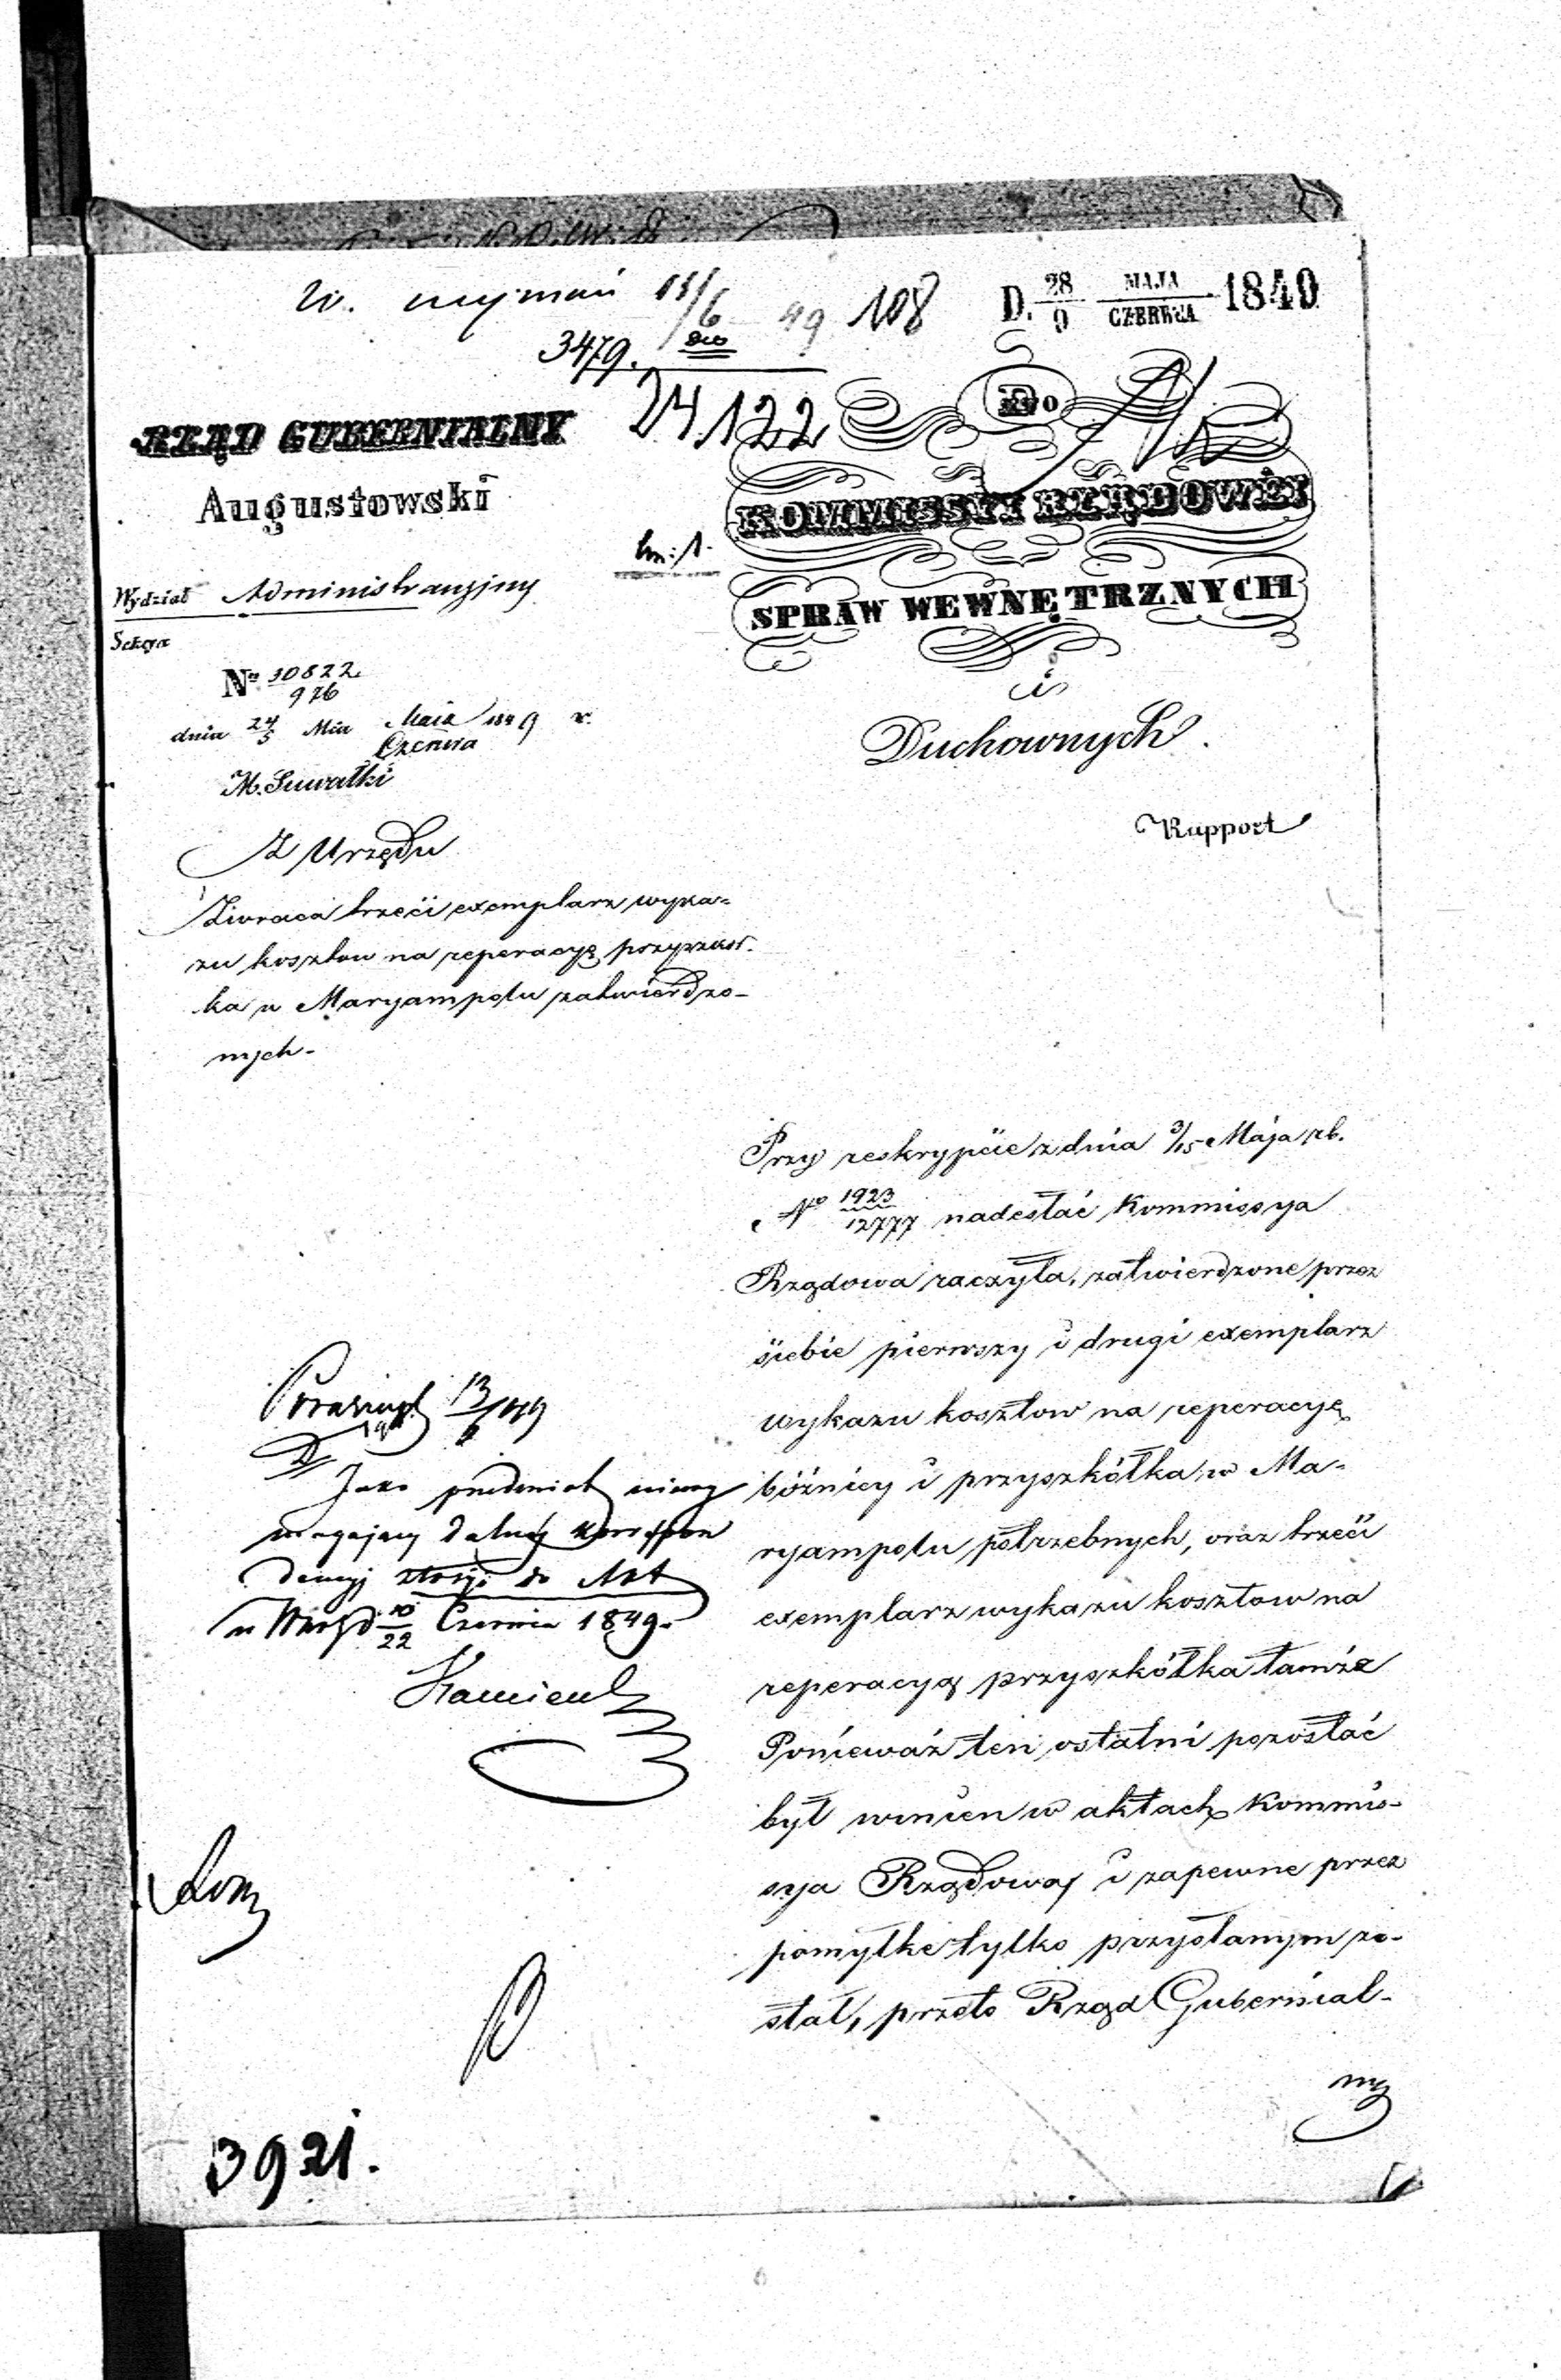 W. wyznań 11/6 49 108
D. 28/9 MAJA/CZERWCA 1849
3479.
24122
RZĄD GUBERNIALNY
Augustowski
Do
KOMMISSYI RZĄDOWÉJ
SPRAW WEWNĘTRZNYCH
i
Duchownych.
Wydział Administracyjny
Sekcya
No 30822/976
dnia 24/5 Mca Maia/Czerwca 1849 r.
M. Suwałki
Rapport
Z Urzędu
Zwraca trzeci exemplarz wyka-
zu kosztow na reperacyę przyszkoł-
ka w Maryampolu zatwierdzo-
nych-
Przy reskrypcie z dnia 3/15 Maja rb.
No 1923/12777 nadesłać Kommissya
Rządowa raczyła, zatwierdzone przez
siebie pierwszy i drugi exemplarz
wykazu kosztow na reperacyę
bóżnicy i przyszkółka w Ma-
ryampolu potrzebnych, oraz trzeci
exemplarz wykazu kosztow na
reperacyą przyszkółka tamże
Ponieważ ten ostatni pozostać
był winien w aktach Kommis-
sya Rządowaj i zapewne przez
pomyłkę tylko przysłanym zo-
stał, przeto Rząd Gubernial-
ny
13/6 49
Jako przedmiot niewy
magajacy dalszéj korrespon
dencyj złożyć do Akt
w Warsz d 10/22 Czerwca 1849.
3921.